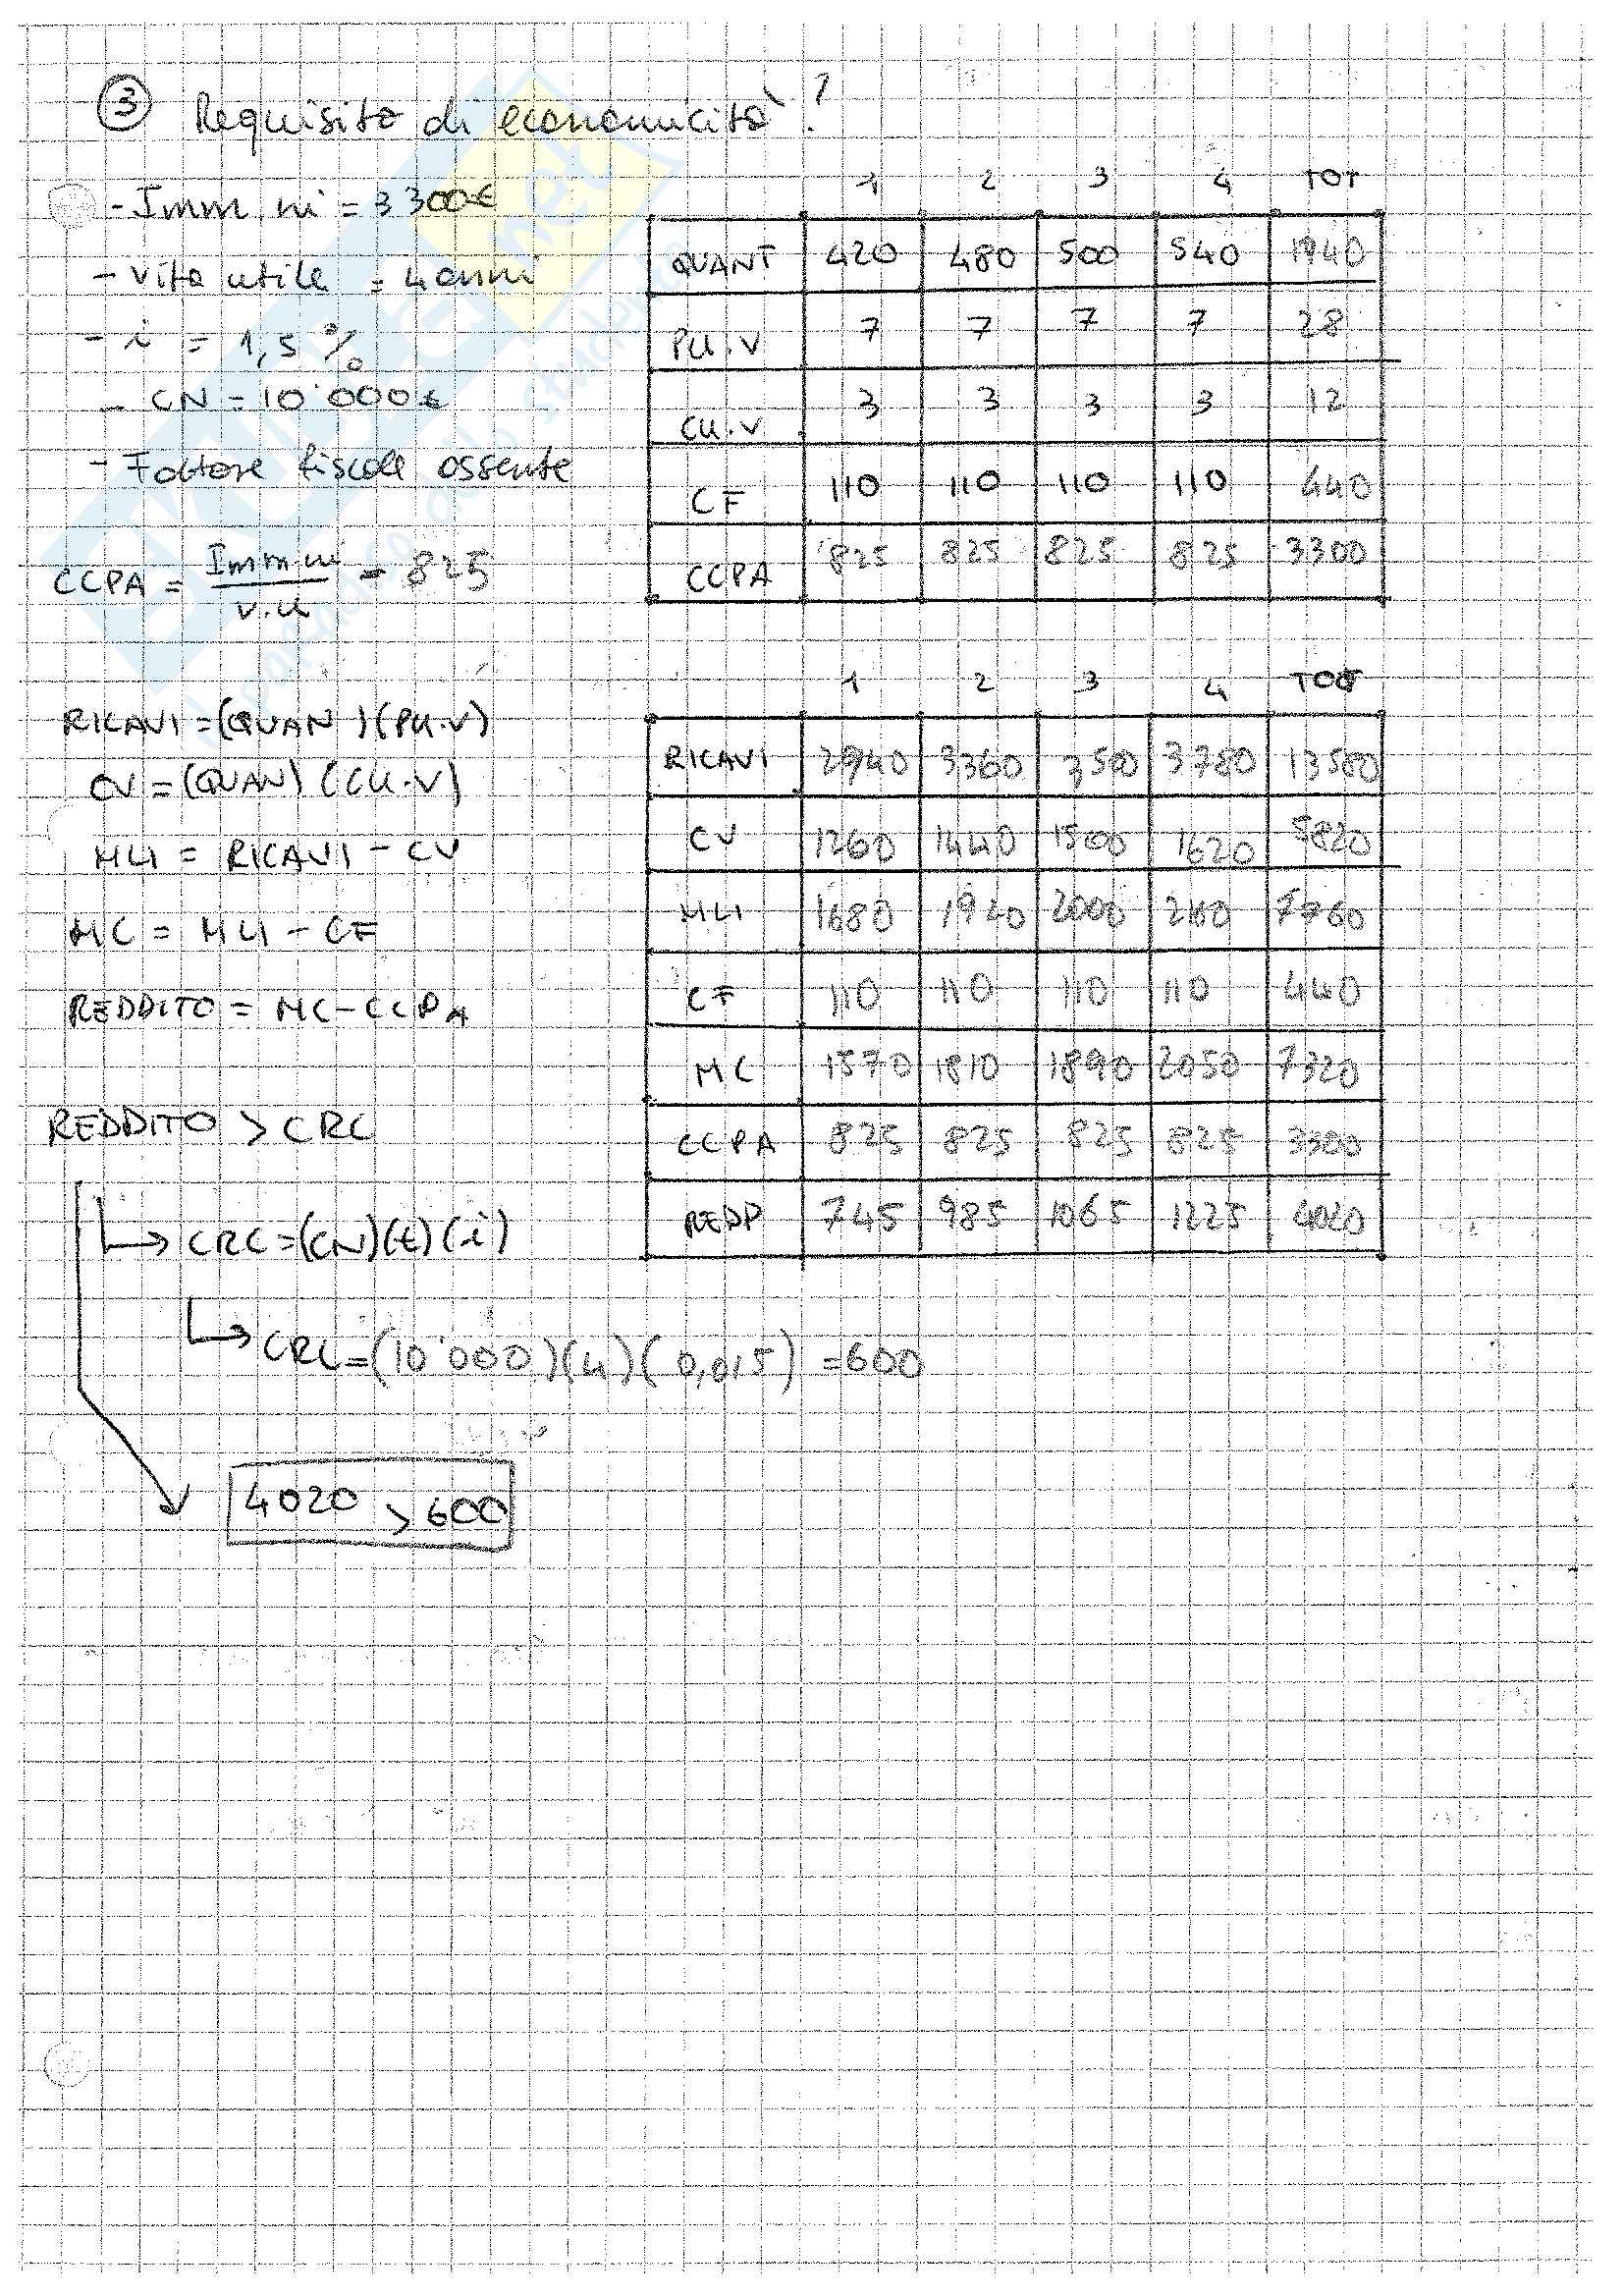 ③ Requisito di economicità?
- Imm. ni = 3'300€
- vita utile = 4 anni
- i = 1,5 %
- CN = 10'000€
- Fattore fiscale assente
CCPA = Imm.ni / v.u = 825
1 2 3 4 TOT
QUANT 420 480 500 540 1940
PU.V 7 7 7 7 28
CU.V 3 3 3 3 12
CF 110 110 110 110 440
CCPA 825 825 825 825 3300
RICAVI = (QUAN)(PU.V)
CV = (QUAN)(CU.V)
MLI = RICAVI - CV
MC = MLI - CF
REDDITO = MC - CCPA
REDDITO > CRC
1 2 3 4 TOT
RICAVI 2940 3360 3500 3780 13580
CV 1260 1440 1500 1620 5820
MLI 1680 1920 2000 2160 7760
CF 110 110 110 110 440
MC 1570 1810 1890 2050 7320
CCPA 825 825 825 825 3300
REDD 745 985 1065 1225 4020
↳ CRC = (CN)(t)(i)
↳ CRC = (10'000)(4)(0,015) = 600
4020 > 600